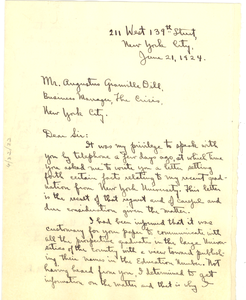 211 West 139th Street,
New York City,
June 21, 1924.
Mr. Augustus Granville Dill,
Business Manager, The Crisis,
New York City.
Dear Sir:
It was my privilege to speak with
you by telephone a few days ago, at which time
you asked me to write you a letter, setting
forth certain facts relating to my recent grad-
uation from New York University. This letter
is the result of that request and of careful and
due consideration given the matter.
I had been informed that it was
customary for your paper to communicate with
all the prospective graduates in the large Univer-
sities of the country with a view toward publish-
ing their names in the Education Number. Not
having heard from you, I determined to get
information on the matter and that is why I